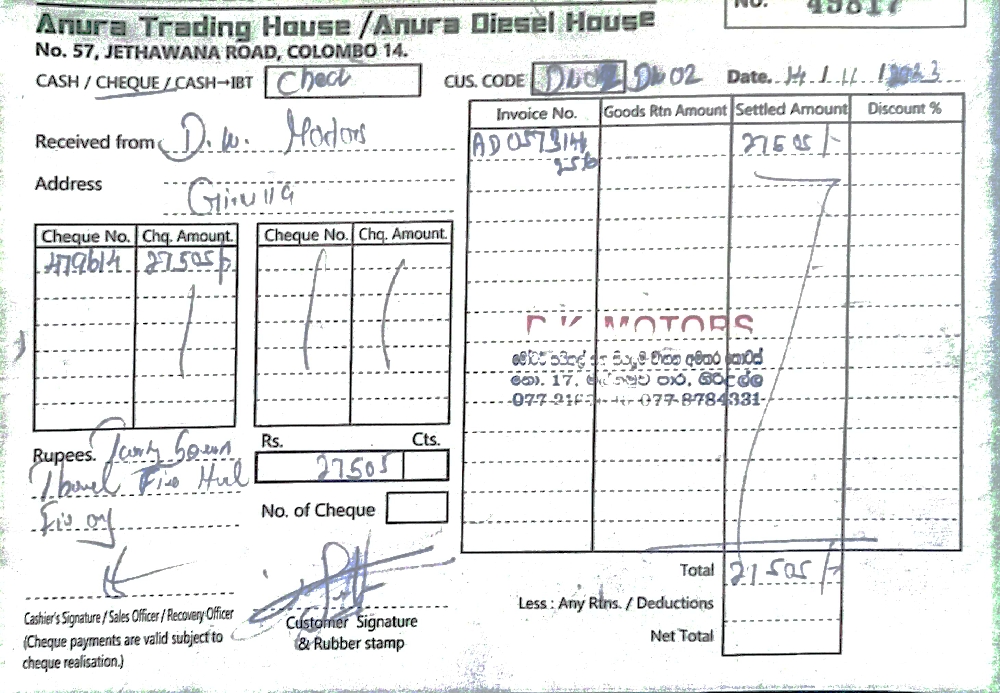 No. 45817
Anura Trading House /Anura Diesel House
No. 57, JETHAWANA ROAD, COLOMBO 14.
CASH / CHEQUE / CASH→IBT
CUS. CODE DW02 DW02
Date. 14 / 11 / 2023
Received from D.W. Motors
Address Giriulla
Invoice No. Goods Rtn Amount Settled Amount Discount %
27505/-
Cheque No. Chq. Amount. Cheque No. Chq. Amount.
479614 27505/-
D.K. MOTORS
077-8784331
Rupees. Twenty Seven
Thousand Five Hund
Five only
Rs. Cts.
27505
No. of Cheque
Total 27505/-
Less : Any Rtns. / Deductions
Net Total
Cashier's Signature / Sales Officer / Recovery Officer
(Cheque payments are valid subject to
cheque realisation.)
Customer Signature
& Rubber stamp